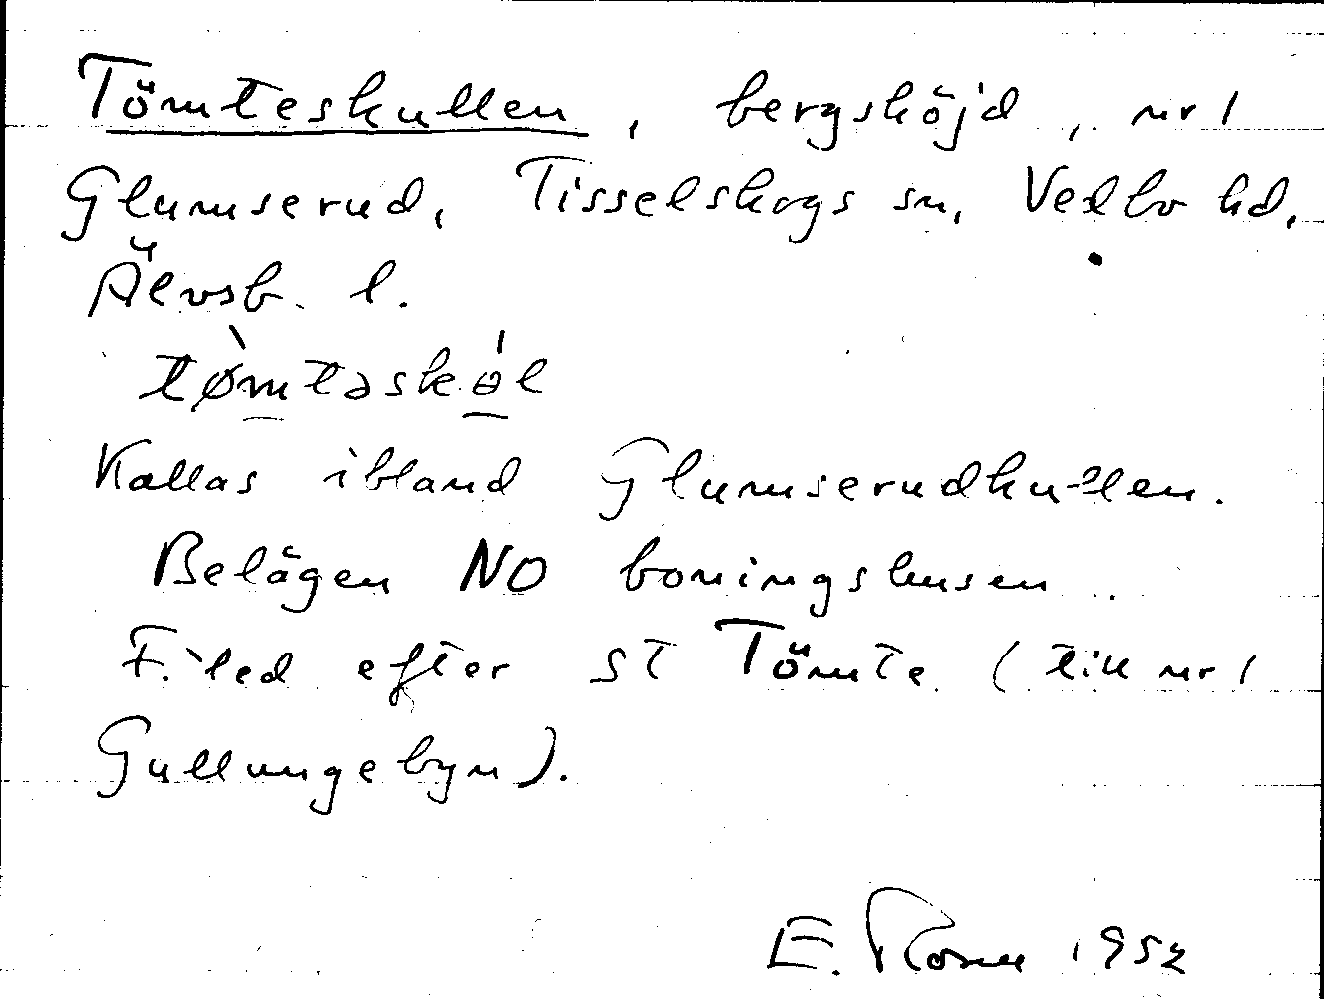 Tömteskullen, bergshöjd, nr 1
Glumserud, Tisselskogs sn, Vedbo hd,
Älvsb. l.
tø̀mtəskɵ́l
Kallas ibland Glumserudkullen.
Belägen NO boningshusen.
F.led efter st Tömte (till nr 1
Gullungebyn).
E. 1952